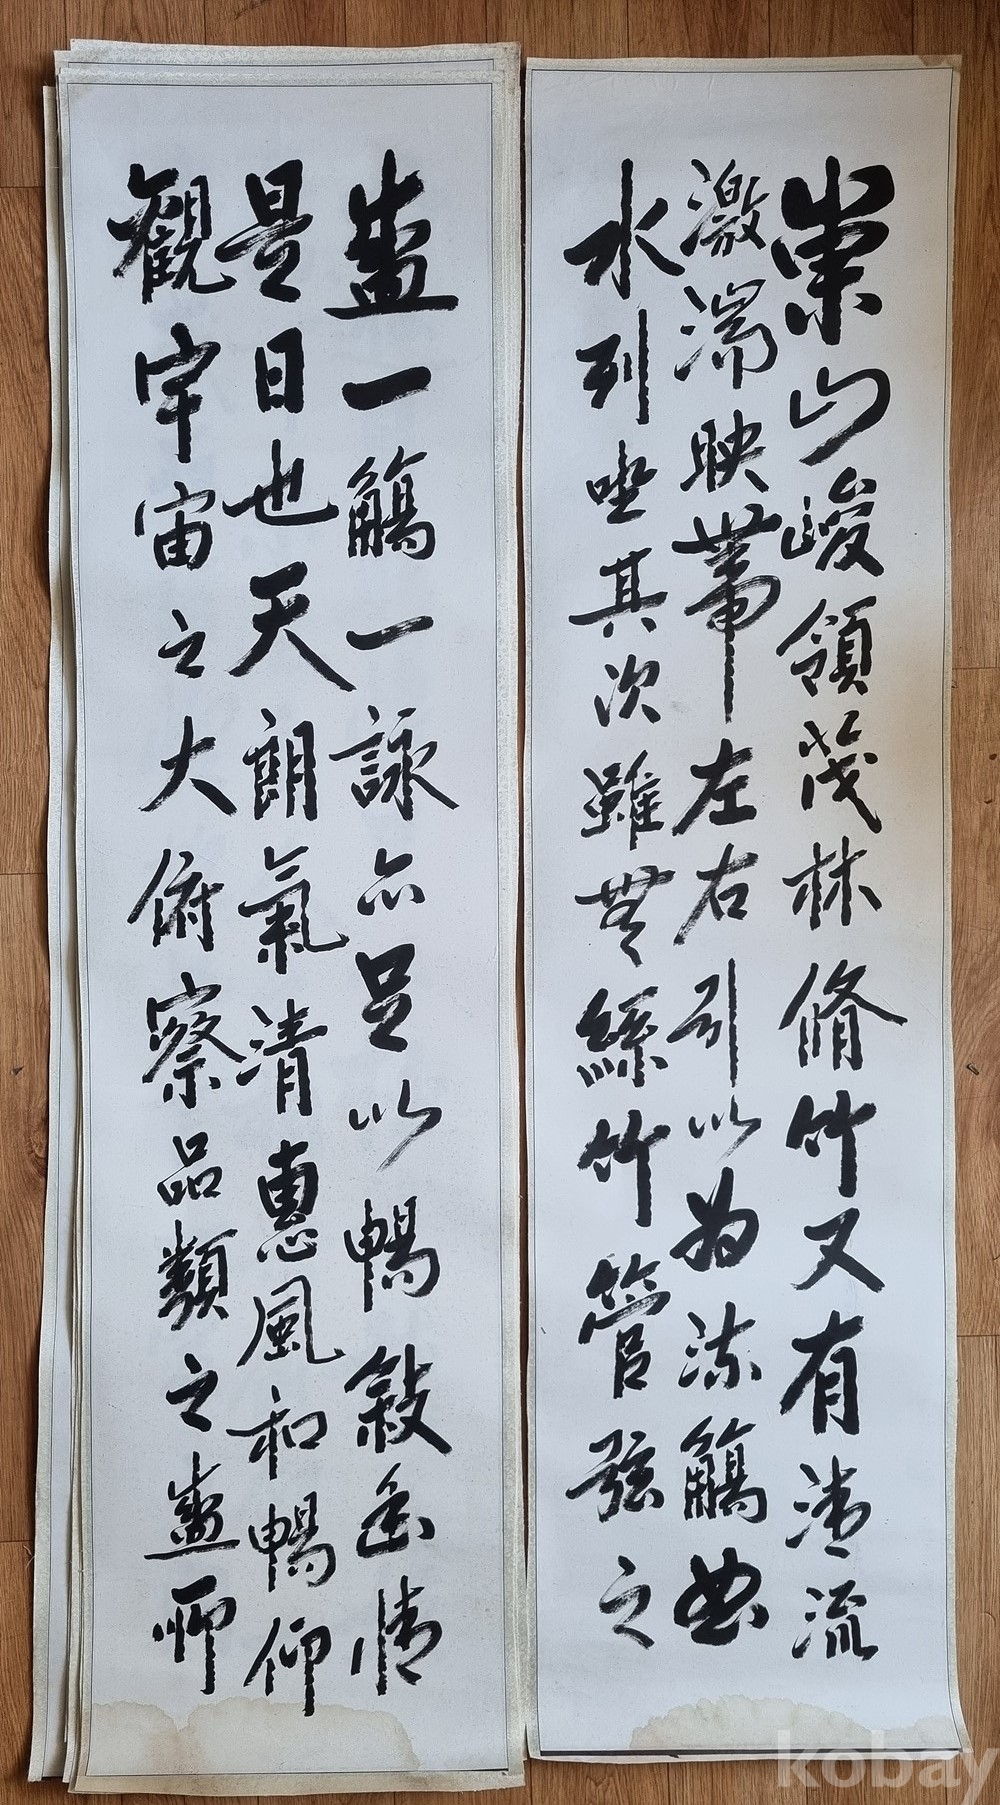 崇山峻領茂林脩竹又有清流
激湍映帶左右引以為流觴曲
水列坐其次雖無絲竹管弦之
盛一觴一詠亦足以暢敘幽情
是日也天朗氣清惠風和暢仰
觀宇宙之大俯察品類之盛所
kobay